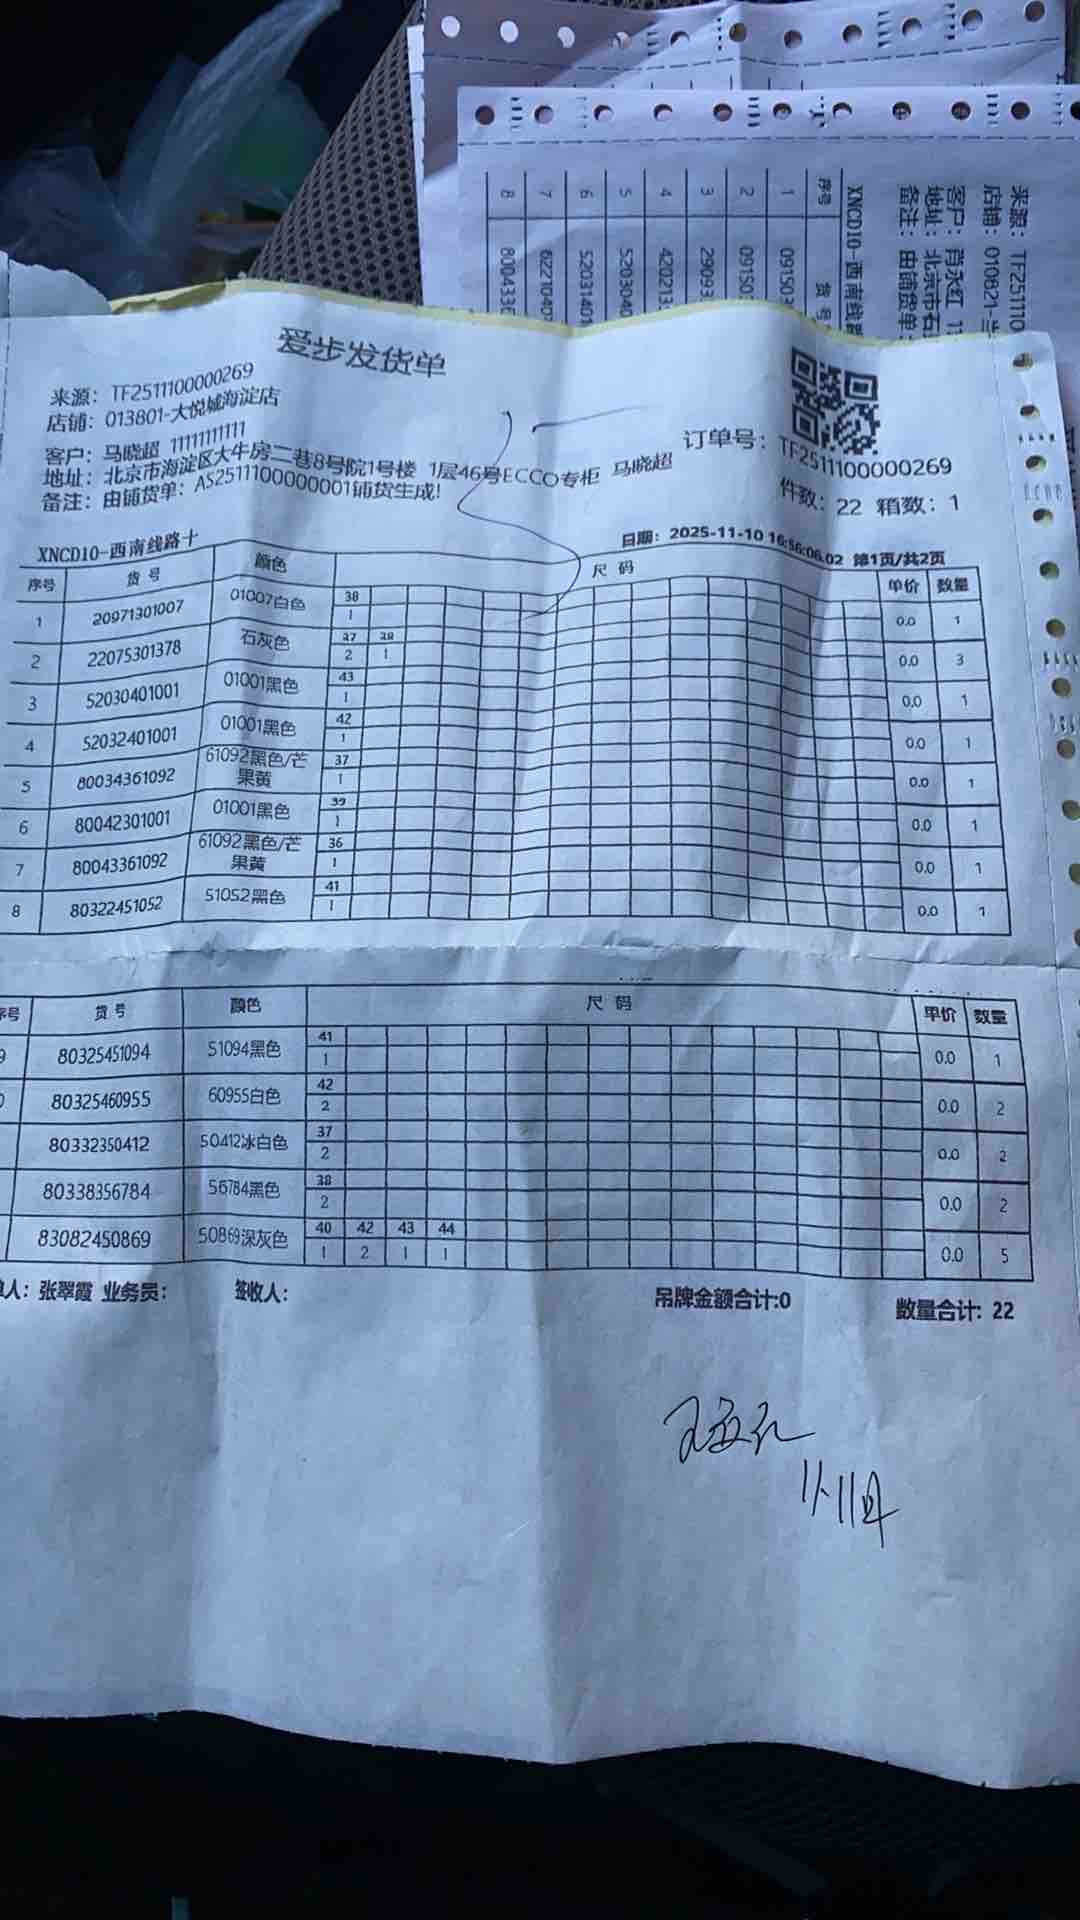 爱步发货单
来源：TF2511100000269
店铺：013801-大悦城海淀店
客户：马晓超 11111111111
地址：北京市海淀区大牛房二巷8号院1号楼 1层46号ECCO专柜 马晓超
备注：由铺货单：AS2511100000001铺货生成!
订单号：TF2511100000269
件数：22 箱数：1
XNCD10-西南线路十
日期：2025-11-10 16:56:06.02 第1页/共2页
序号 货号 颜色 尺码 单价 数量
1 20971301007 01007白色 38 0.0 1
1
2 22075301378 石灰色 37 38 0.0 3
2 1
3 52030401001 01001黑色 43 0.0 1
1
4 52032401001 01001黑色 42 0.0 1
1
5 80034361092 61092黑色/芒果黄 37 0.0 1
1
6 80042301001 01001黑色 39 0.0 1
1
7 80043361092 61092黑色/芒果黄 36 0.0 1
1
8 80322451052 51052黑色 41 0.0 1
1
序号 货号 颜色 尺码 单价 数量
9 80325451094 51094黑色 41 0.0 1
1
80325460955 60955白色 42 0.0 2
2
80332350412 50412冰白色 37 0.0 2
2
80338356784 56784黑色 38 0.0 2
2
83082450869 50869深灰色 40 42 43 44 0.0 5
1 2 1 1
人：张翠霞 业务员： 签收人： 吊牌金额合计:0 数量合计: 22
11.11日
来源：TF251110
店铺：010821-兰
客户：肖永红 1
地址：北京市石
备注：由铺货单
XNCD10-西南线
序号 货号
1 09150
2 09150
3 29093
4 42021
5 520304
6 5203140
7 6221040
8 800433